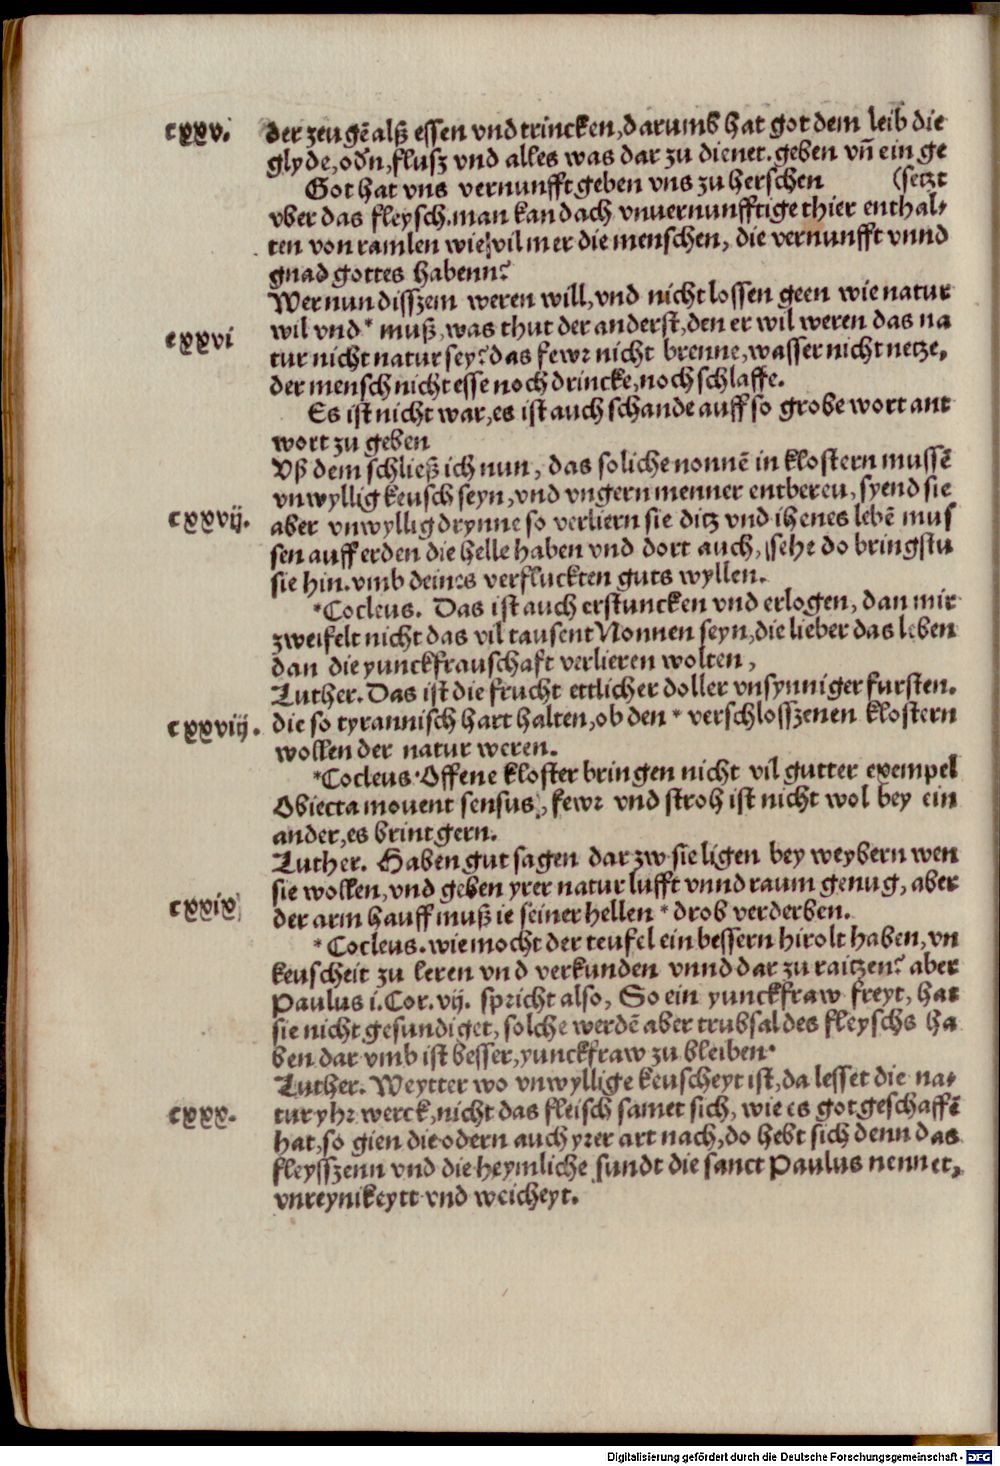 cxxv. der zeugē alß essen vnd trincken, darumb hat got dem leib die
glyde, odn, flusz vnd alles was dar zu dienet. geben vn̄ ein ge
Got hat vns vernunfft geben vns zu herschen (setzt
vber das fleysch. man kan dach vnuernunfftige thier enthal-
ten von ramlen wie vil mer die menschen, die vernunfft vnnd
gnad gottes habenn?
Wer nun disszem weren will, vnd nicht lossen geen wie natur
cxxvi wil vnd * muß, was thut der anderst, den er wil weren das na
tur nicht natur sey? das fewr nicht brenne, wasser nicht netze,
der mensch nicht esse noch drincke, noch schlaffe.
Es ist nicht war, es ist auch schande auff so grobe wort ant
wort zu geben
Vß dem schließ ich nun, das soliche nonnē in klostern mussē
vnwyllig keusch seyn, vnd vngern menner entbereu, syend sie
cxxvij. aber vnwyllig drynne so verliern sie ditz vnd ihenes lebē mus
sen auff erden die helle haben vnd dort auch, sehr do bringstu
sie hin. vmb deines verfluckten guts wyllen.
*Cocleus. Das ist auch erstuncken vnd erlogen, dan mir
zweifelt nicht das vil tausent Nonnen seyn, die lieber das leben
dan die yunckfrauschaft verlieren wolten,
Luther. Das ist die frucht ettlicher doller vnsynniger fursten.
cxxviij. die so tyrannisch hart halten, ob den * verschlosszenen klostern
wollen der natur weren.
*Cocleus. Offene kloster bringen nicht vil gutter exempel
Obiecta mouent sensus, fewr vnd stroh ist nicht wol bey ein
ander, es brint gern.
Luther. Haben gut sagen dar zw sie ligen bey weybern wen
sie wollen, vnd geben yrer natur lufft vnnd raum genug, aber
cxxix der arm hauff muß ie seiner hellen * drob verderben.
* Cocleus. wie mocht der teufel ein bessern hirolt haben, vn
keuscheit zu leren vnd verkunden vnnd dar zu raitzen? aber
Paulus i. Cor. vij. spricht also, So ein yunckfraw freyt, hat
sie nicht gesundiget, solche werdē aber trubsal des fleyschs ha
ben dar vmb ist besser, yunckfraw zu bleiben.
Luther. Weytter wo vnwyllige keuscheyt ist, da lesset die na-
cxxx. tur yhr werck, nicht das fleisch samet sich, wie es got geschaffē
hat, so gien die odern auch yrer art nach, do hebt sich denn das
fleysszenn vnd die heymliche sundt die sanct Paulus nennet,
vnreynikeytt vnd weicheyt.
Digitalisierung gefördert durch die Deutsche Forschungsgemeinschaft - DFG